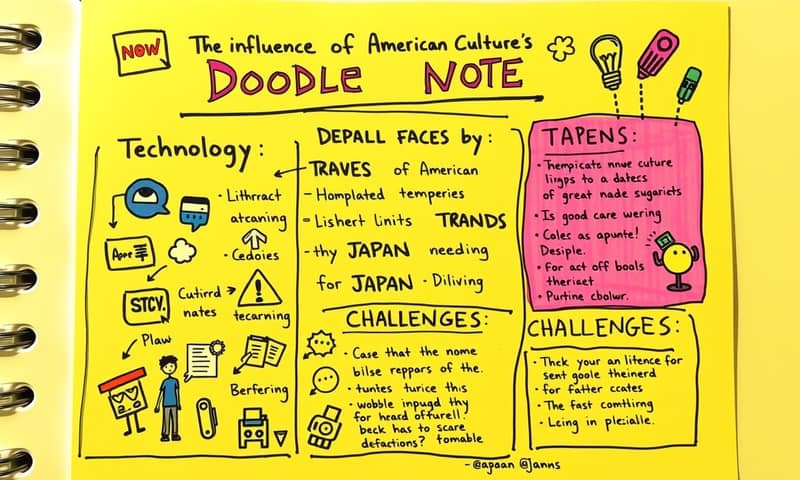 NOW
The influence of American Culture's
DOODLE NOTE
Technology:
• Lithrract
atcaning
• Cedoies
Appe
STCY.
Cutirrd
nates
tecarning
Plaw
Berfering
DEPALL FACES by:
TRAVES of American
- Homplated temperies
- Lishert Linits TRANDS
- thy JAPAN needing
for JAPAN • Diliving
CHALLENGES:
• Case that the nome
bilse reppors of the.
• tuntes turice this
• wobble inpugd thy
for heard offurell!
beck has to scare
defactions? tomable
TAPENS:
culture
lirgps to a datecs
of great nade sugaricts
• Is good care wering
• Coles as apunte!
Desiple.
• For act off bools
theriset
• Purtine cbolwr.
CHALLENGES:
• Thck your an litence for
sent goole theinerd
• for fatter ccates
• The fast comtlirng
• Lcing in plezialle.
- @apaan @Janns